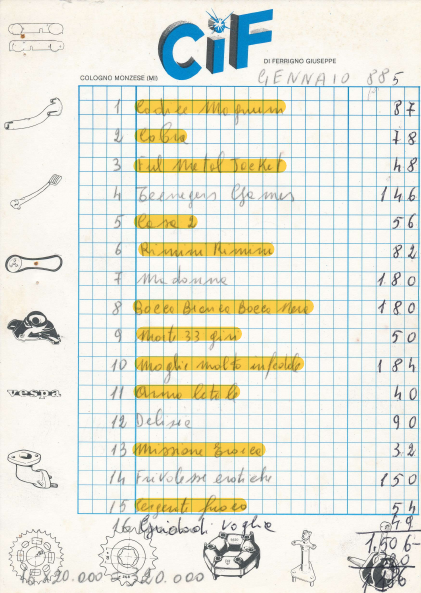 CiF
DI FERRIGNO GIUSEPPE
COLOGNO MONZESE (MI)
GENNAIO 885
1 Codice Magnum 87
2 Cobra 78
3 Ful Metal Jacket 48
4 Teenegers Games 146
5 Casa 2 56
6 Rimini Rimini 82
7 Madonna 180
8 Bocca Bianca Bocca Nera 180
9 Morte 33 giri 50
10 Moglie molto infedele 184
11 Arma letale 40
12 Delizia 90
13 Missione Eroica 32
14 Frivolesse erotiche 150
15 Sergente fuoco 54
16 di Voglia 49
1,506-
20.000 20.000
vespa